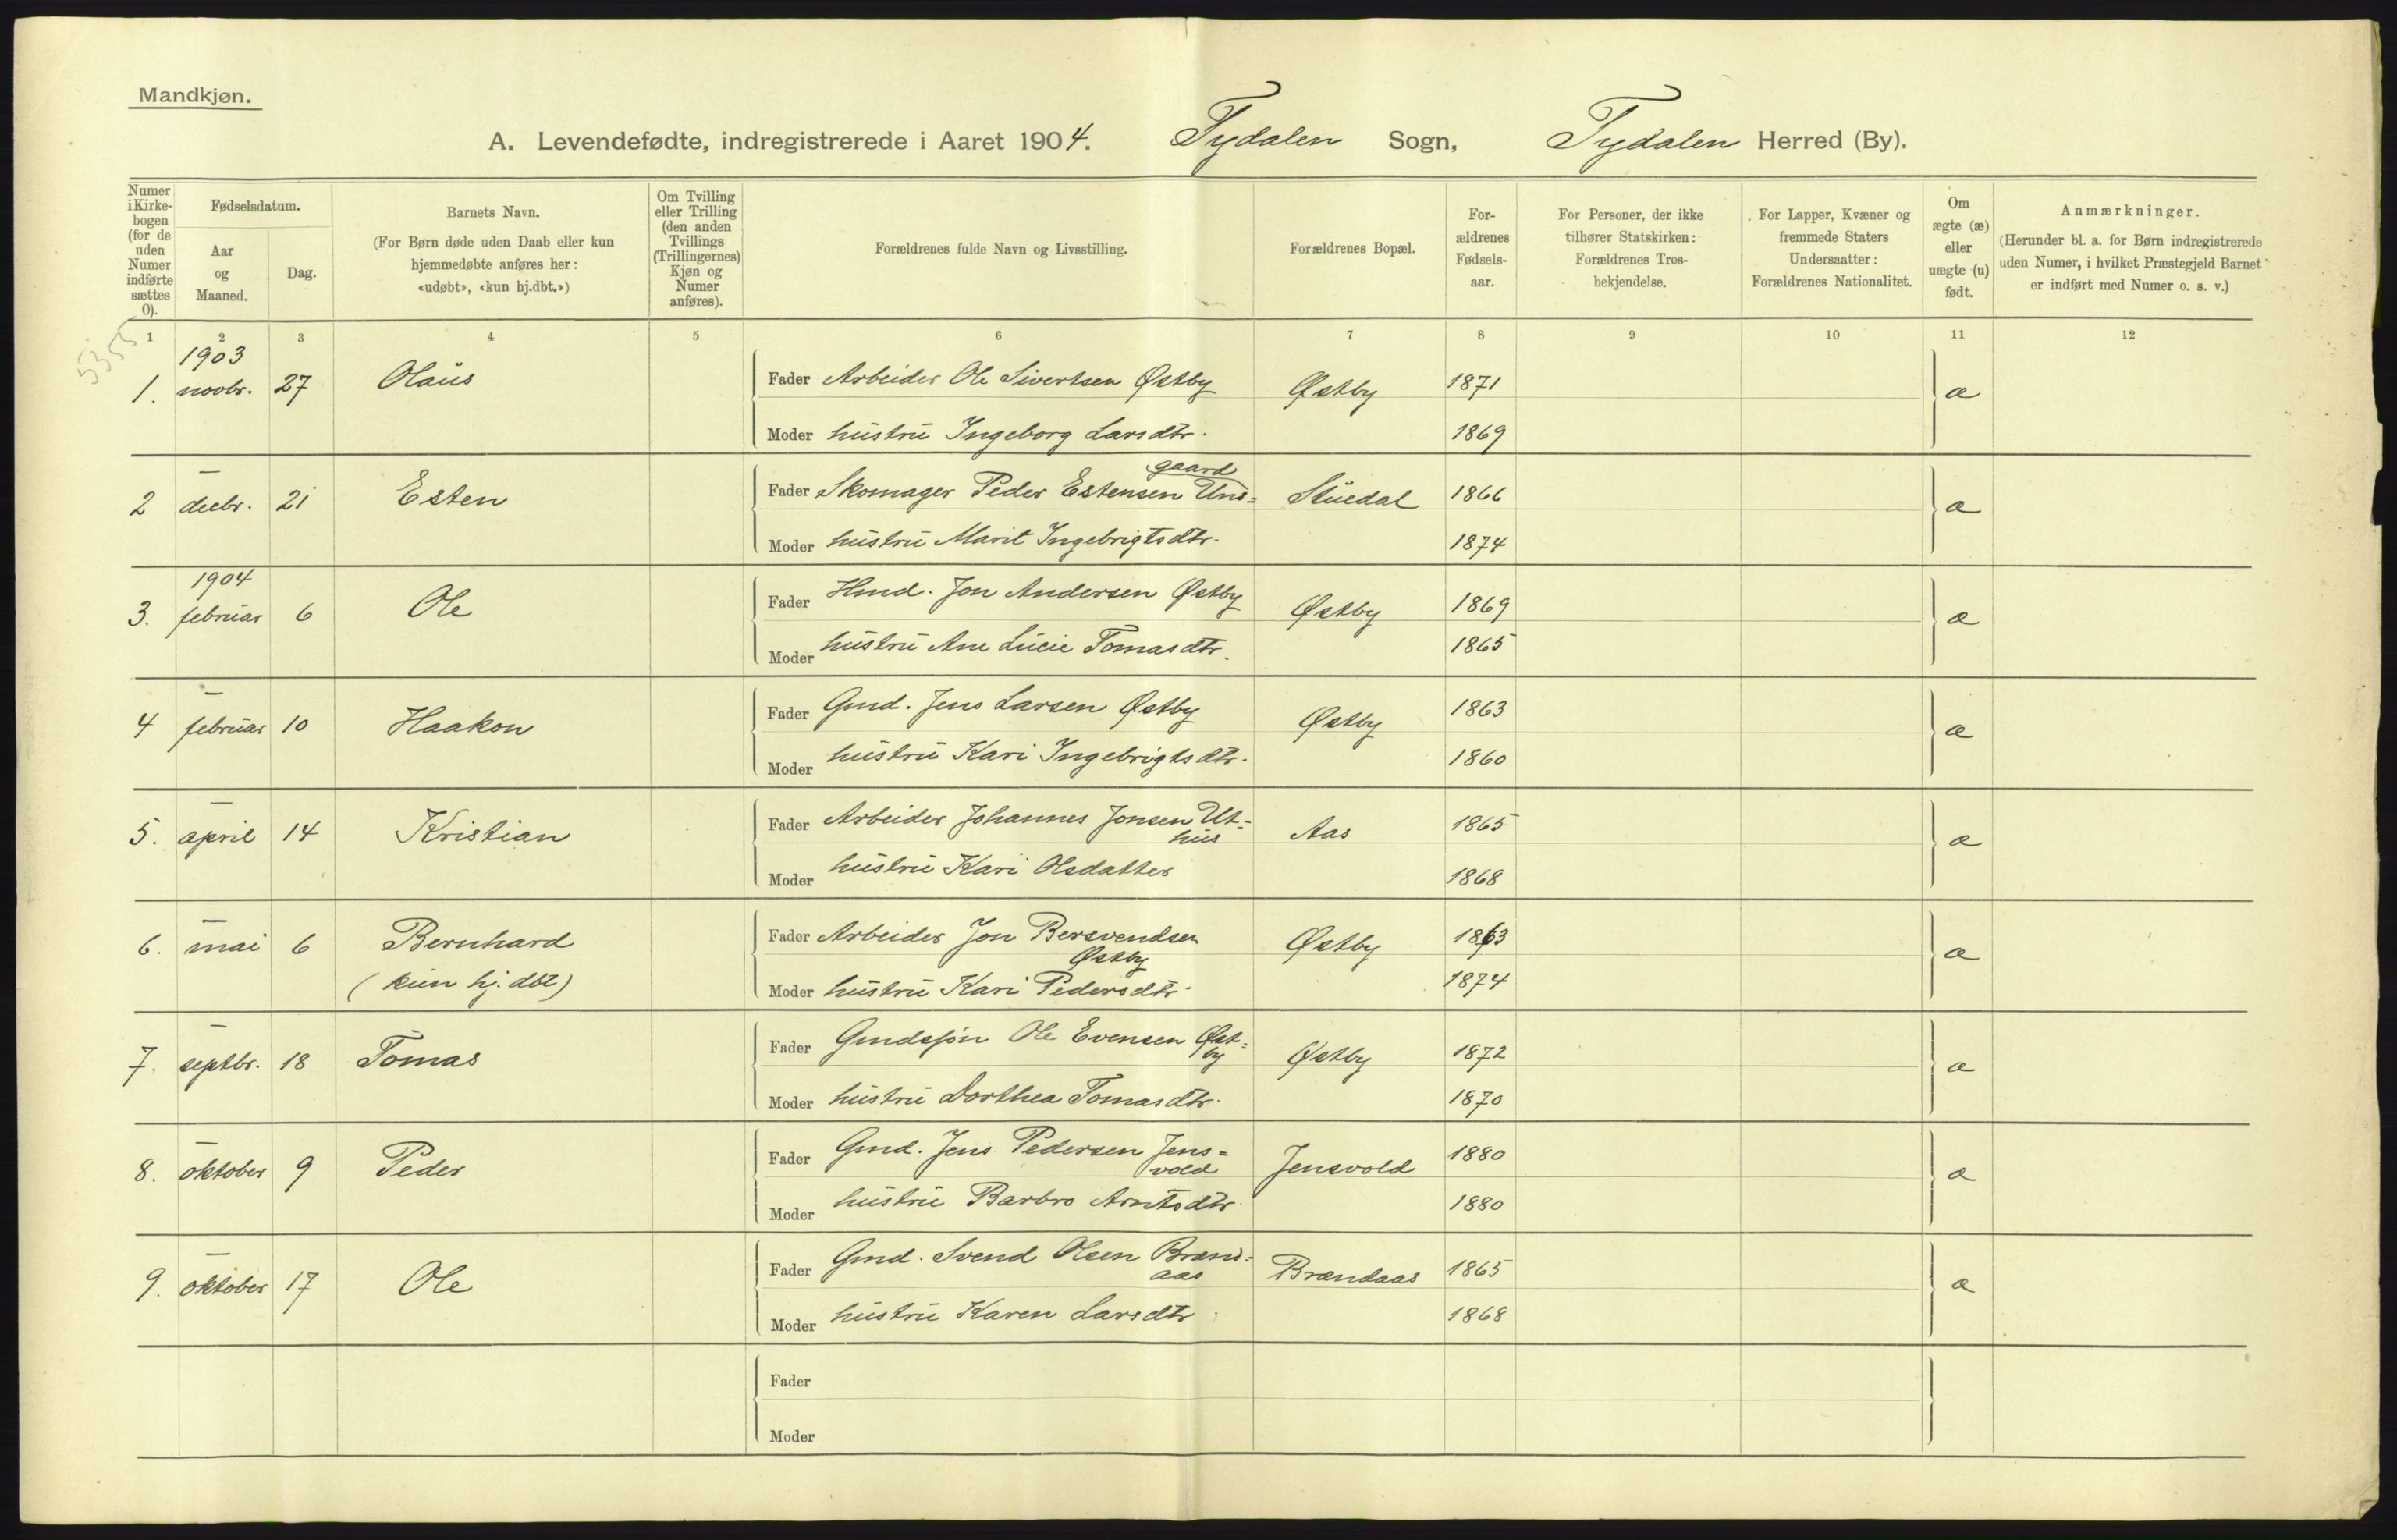 Mandkjøn.
A. Levendefødte, indregistrerede i Aaret 1904. Tydalen Sogn, Tydalen Herred (By).
Numer i Kirkebogen (for de uden Numer indførte sættes 0).
Fødselsdatum.
Aar og Maaned.
Dag.
Barnets Navn.
(For Børn døde uden Daab eller kun hjemmedøbte anføres her: «udøbt», «kun hj.dbt.»)
Om Tvilling eller Trilling (den anden Tvillings (Trillingernes) Kjøn og Numer anføres).
Forældrenes fulde Navn og Livsstilling.
Forældrenes Bopæl.
For-ældrenes Fødsels-aar.
For Personer, der ikke tilhører Statskirken: Forældrenes Tros-bekjendelse.
For Lapper, Kvæner og fremmede Staters Undersaatter: Forældrenes Nationalitet.
Om ægte (æ) eller uægte (u) født.
Anmærkninger.
(Herunder bl. a. for Børn indregistrerede uden Numer, i hvilket Præstegjeld Barnet er indført med Numer o. s. v.)
1 2 3 4 5 6 7 8 9 10 11 12
5355
1903
1. novbr. 27 Olaus Fader Arbeider Ole Sivertsen Østby Østby 1871 æ
Moder hustru Ingeborg Larsdtr. 1869
gaard
2 – decbr. 21 Esten Fader Skomager Peder Estensen Uns= Stuedal 1866 æ
Moder hustru Marit Ingebrigtsdtr. 1874
1904
3. februar 6 Ole Fader Hmd. Jon Andersen Østby Østby 1869 æ
Moder hustru Ane Lucie Tomasdtr. 1865
4 – februar 10 Haakon Fader Gmd. Jens Larsen Østby Østby 1863 æ
Moder hustru Kari Ingebrigtsdtr. 1860
5. – april 14 Kristian Fader Arbeider Johannes Jonsen Ut= Aas 1865 æ
hus
Moder hustru Kari Olsdatter 1868
6. – mai 6 Bernhard Fader Arbeider Jon Bersvendsen Østby 1863 æ
Østby
(kun hj. dbt) Moder hustru Kari Pedersdtr. 1874
7. – septbr. 18 Tomas Fader Gmdssøn Ole Evensen Øst= Østby 1872 æ
by
Moder hustru Dorthea Tomasdtr. 1870
8. – oktober 9 Peder Fader Gmd. Jens Pedersen Jens= Jensvold 1880 æ
vold
Moder hustru Barbro Arntsdtr. 1880
9. – oktober 17 Ole Fader Gmd. Svend Olsen Brænd= Brændaas 1865 æ
aas
Moder hustru Karen Larsdtr 1868
Fader
Moder